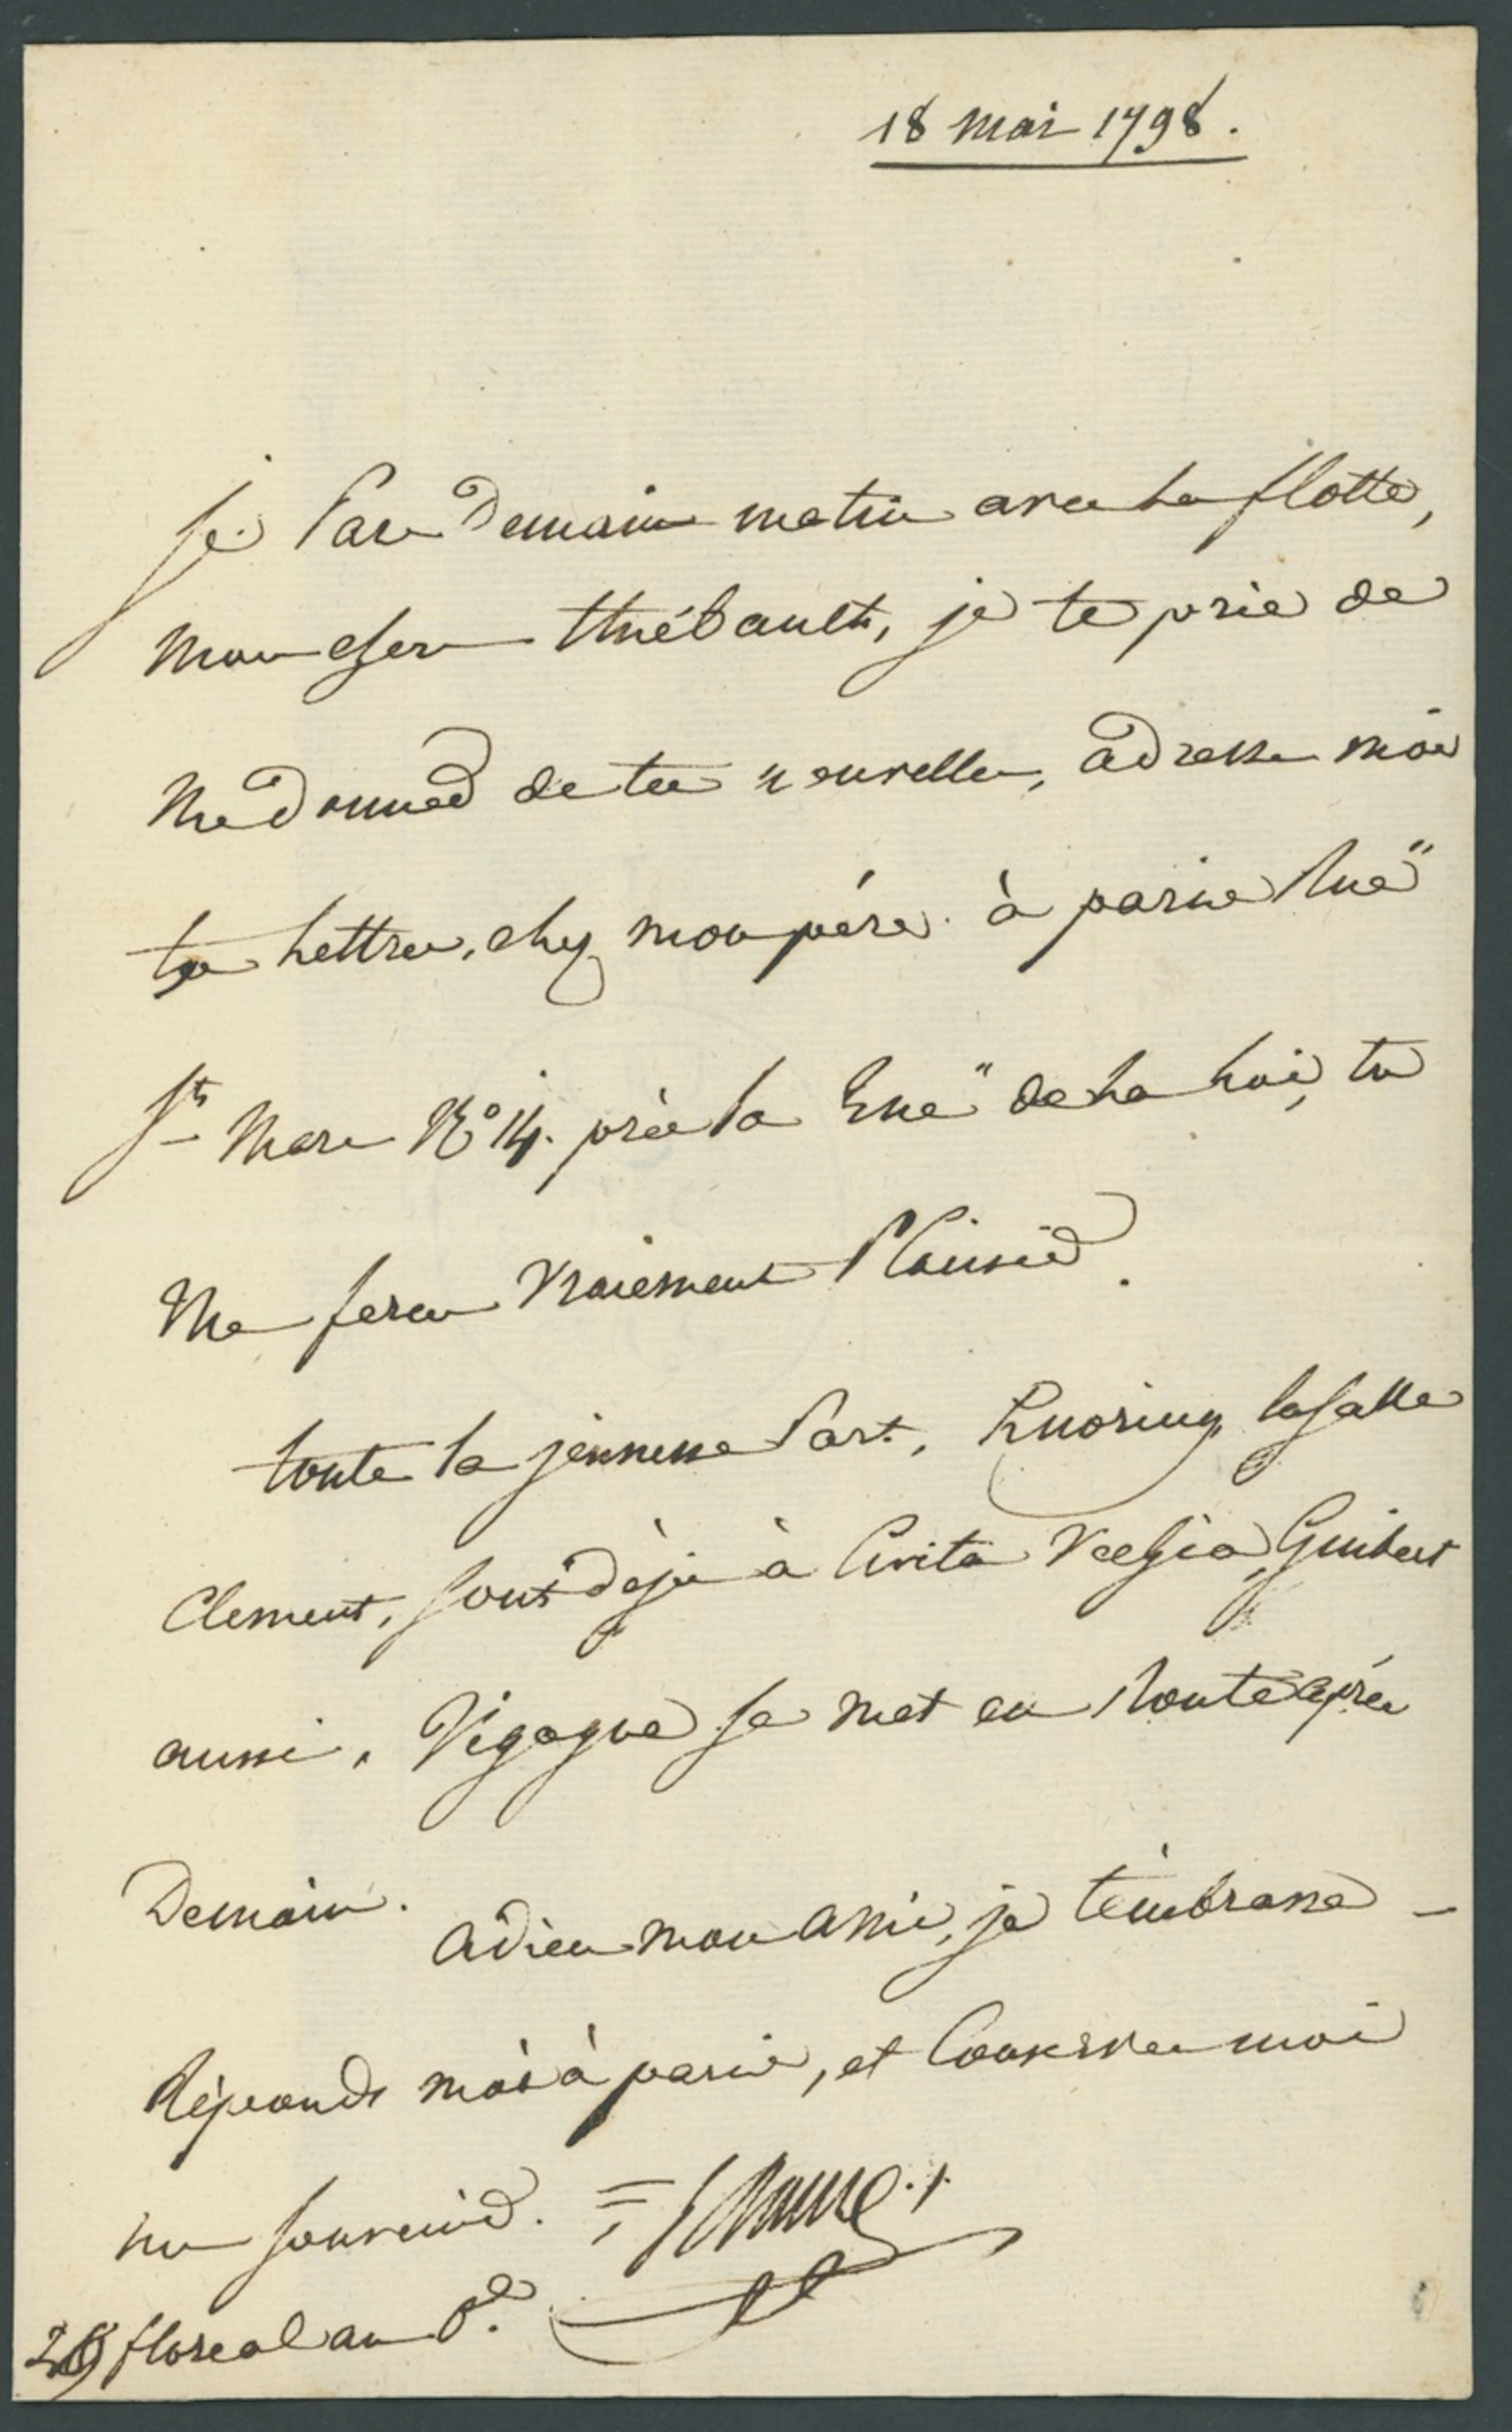 18 mai 1798.
je Pars Demain matin avec La flotte,
mon cher thiébault, je te prie de
me Donner de tes nouvelles, adresse moi
tes Lettres, chez mon père à paris Rue
St Marc N° 14. près la Rue de La Loi, tu
me feras Vraiement Plaisir.
toute la jeunesse Part, Knoring, lasalle
Clement, sont déja à Civita VeChia, Guibert
aussi, Vigogne se met en Route après
Demain. adieu mon ami, je t'embrasse –
Réponds moi à paris, et Conserve moi
un souvenir.
29 floreal an 6e.